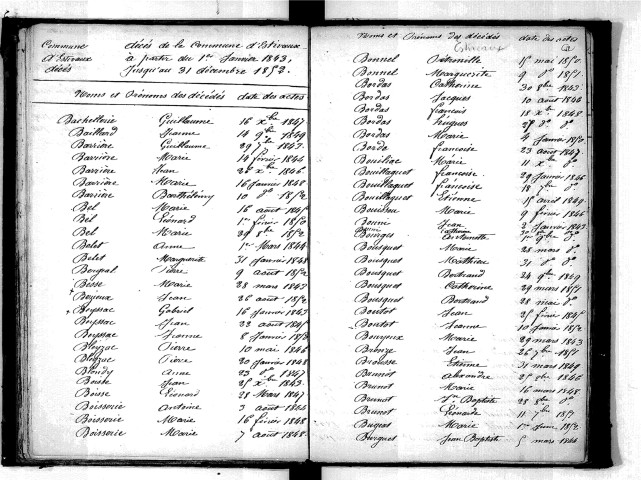 Commune décès de la Commune d'Estivaux
d'Estivaux à partir du 1er Janvier 1843,
décès Jusqu'au 31 décembre 1852.
Noms et Prénoms des décédés date des actes
Bachellerie Guillaume 16 xbre 1847
Baillard Jeanne 14 9bre 1849
Barrière Guillaume 29 7bre 1843
Barrière Marie 14 février 1844
Barrière Jean 28 xbre 1846
Barrière Marie 16 Janvier 1848
Barrière Barthélemy 10 do 1852
Bel Marie 16 août 1845
Bel Léonard 1er février 1850
Bel Marie 29 8bre 1852
Belet Anne 1er Mars 1844
Belet Marguerite 31 Janvier 1848
Pierre 9 août 1852
Besse Marie 28 mars 1843
Jean 26 août 1852
Beyssac Gabriel 16 Janvier 1843
Beyssac Jean 22 août 1845
Beyssac Jeanne 8 Janvier 1852
Bleyzac Pierre 10 mai 1846
Bleyzac Pierre 20 Janvier 1848
Blondy Anne 23 do 1847
Bosse Jean 25 xbre 1843
Bosse Léonard 28 Mars 1847
Boisserie Antoine 3 août 1844
Boisserie Marie 16 février 1848
Boisserie Marie 7 août 1848
Noms et Prénoms des décédés date des actes
Estivaux
Bonnel Pétronille 15 mai 1850
Bonnel Marguerite 9 do 1851
Bordas Catherine 30 8bre 1843
Bordas Jacques 10 août 1844
Bordas françois 18 xbre 1848
Bordas hugues 27 do do
Bordas Marie 4 Janvier 1850
Borde françoise 23 août 1843
Marie 11 xbre do
Bouillaguet françoise 29 Janvier 1846
Bouillaguet françoise 18 7bre do
Bouillaguet Etienne 15 avril 1849
Marie 9 février 1846
Jean 2 Janvier 1843
Bourges Antoinette 1er 9bre do
Bousquet Marie 28 mars do
Bousquet Mathieu 31 do do
Bousquet Bertrand 24 9bre 1849
Bousquet Catherine 29 mars 1851
Bousquet Bertrand 28 mai do
Boutot Jean 25 février 1845
Boutot Jeanne 10 Janvier 1852
Marie 29 mars 1843
Jean 26 7bre 1851
Brousse Etienne 31 mars 1849
Brunot Alexandre 25 8bre 1846
Brunot Marie 16 mars 1848
Brunot Jn Baptiste 28 8bre do
Brunot Léonarde 11 7bre 1851
Marie 1er 1852
Burguet Jean Baptiste 5 mars 1844